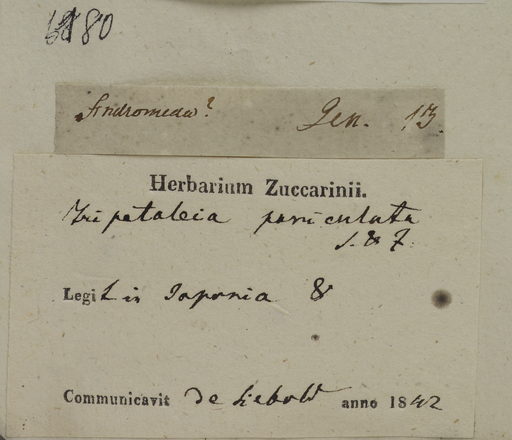 Andromeda? Gen. 13.
Herbarium Zuccarinii.
Tripetaleia paniculata
S. & Z.
Legit in Japonia &
Communicavit de Siebold anno 1842